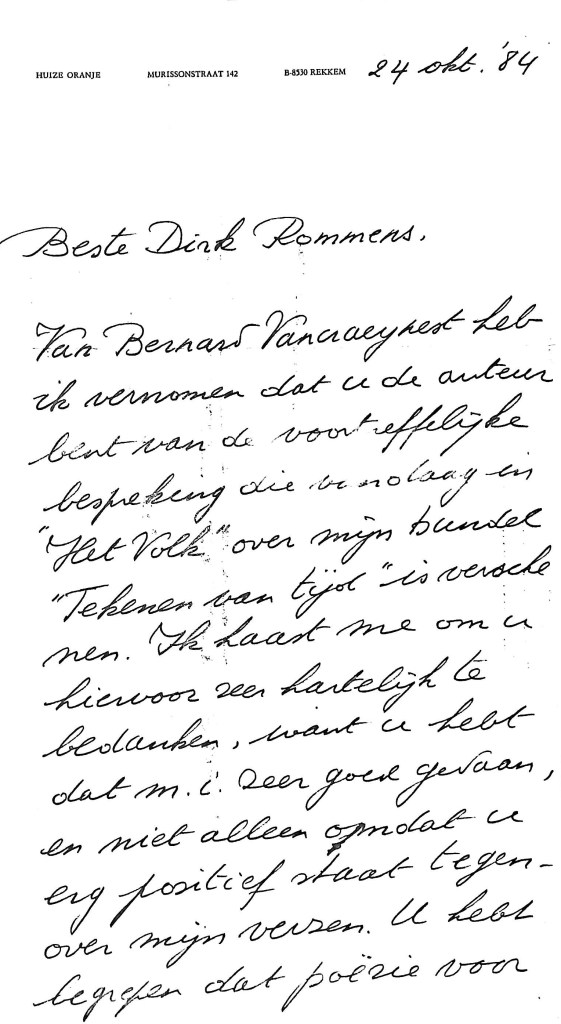 HUIZE ORANJE MURISSONSTRAAT 142 B-8530 REKKEM 24 okt. '84
Beste Dirk Rommens,
Van Bernard Vancraeynest heb
ik vernomen dat u de auteur
bent van de voortreffelijke
bespreking die vandaag in
"Het Volk" over mijn bundel
"Tekenen van tijd" is versche
nen. Ik haast me om u
hiervoor zeer hartelijk te
bedanken, want u hebt
dat m.i. zeer goed gedaan,
en niet alleen omdat u
erg positief staat tegen-
over mijn verzen. U hebt
begrepen dat poëzie voor